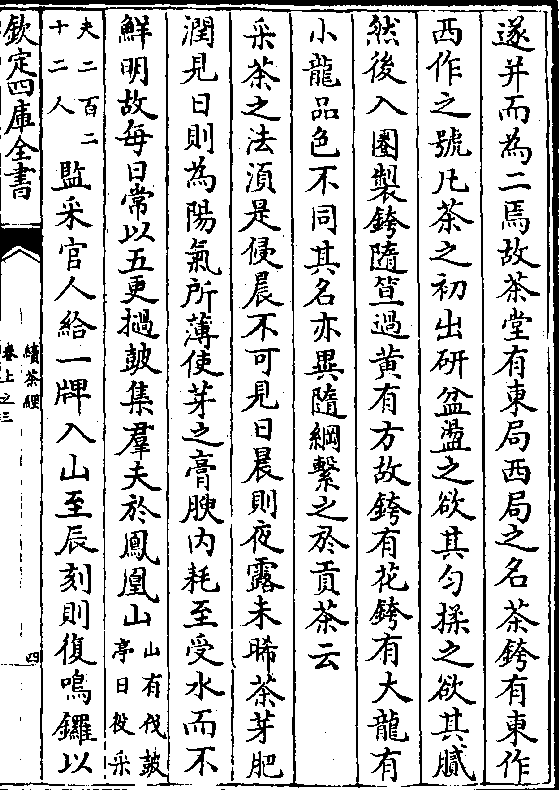 遂并而為二焉故茶堂有東局西局之名茶銙有東作
西作之號凡茶之初出研盆盪之欲其勻揉之欲其膩
然後入圈製銙隨笪過黄有方故銙有花銙有大龍有
小龍品色不同其名亦異隨綱繫之於貢茶云
采茶之法湏是侵晨不可見日晨則夜露未晞茶芽肥
潤見日則為陽氣所薄使芽之膏腴内耗至受水而不
鮮明故每日常以五更撾鼓集羣夫於鳳凰山
山有伐鼓
亭日役采
夫二百二
十二人
監采官人給一牌入山至辰刻則復鳴鑼以
欽定四庫全書
續茶經
卷上之三
四